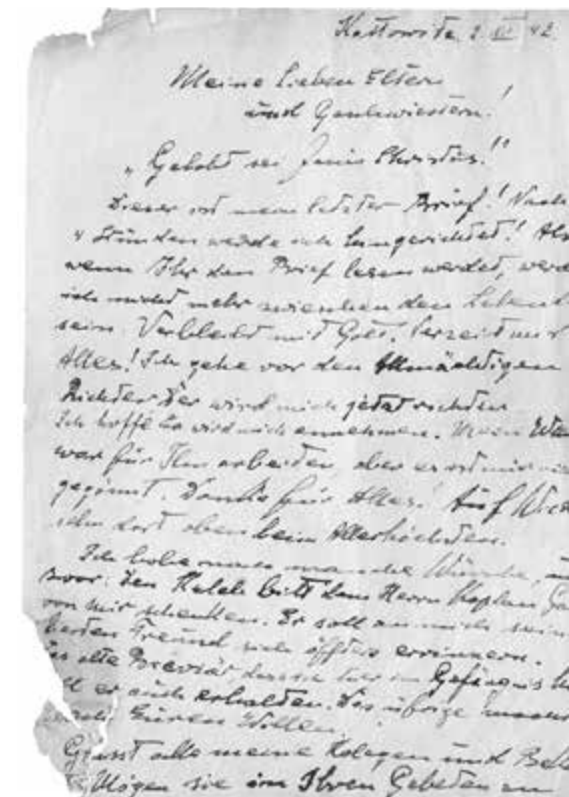 Kattowitz 2 XII 42
Meine Lieben Eltern
und Geschwistern!
„Gelobt sei Jesus Christus!"
Dieser ist mein letzter Brief! Nach
4 Stunden werde ich hingerichtet! Als
wenn Ihr den Brief lesen werdet, werd
ich nicht mehr zwischen den Lebend
sein. Verbleibt mit Gott. Verzeiht mir
Alles! Ich gehe vor den Allmächtigen
Richter der wird mich jetzt richten
Ich hoffe Er wird mich annehmen. Mein Wun
war für Ihn arbeiten, aber es ist mir nic
gegönnt. Danke für Alles! Auf Wied
sehn dort oben beim Allerhöchsten.
Ich habe noch manche Wünsche, u
zwar: den Kelch bitt dem Herrn Kaplan
von mir schenken. Er soll an mich sein
Freund sich öffters errinnern.
alte Brevier, das sie hier im Gefängnis
er auch erhalten. Das übrige
Euren Willen.
Grüsst alle meine Kolegen und
Mögen sie in Ihren Gebeten an